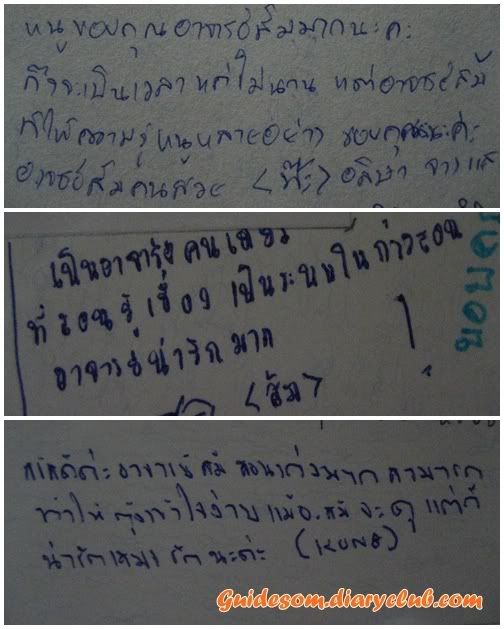 หนูขอบคุณอาจารย์ส้มมากนะคะ
ถึงจะเป็นเวลาแค่ไม่นาน แต่อาจารย์ส้ม
ก็ให้ความรู้หนูหลายอย่าง ขอบคุณนะคะ
อาจารย์ส้มคนสวย อลิษา
เป็นอาจารย์คนเดียว
ที่สอนรู้เรื่อง เป็นระบบในการสอน
อาจารย์น่ารักมาก
(ส้ม)
ขอบคุ
อาจารย์ส้ม สอนเก่งมาก สามารถ
ทำให้ เข้าใจง่าย แม้อ.ส้มจะดุ แต่ก็
น่ารักเสมอ รักนะค่ะ
Guidesom.diaryclub.com